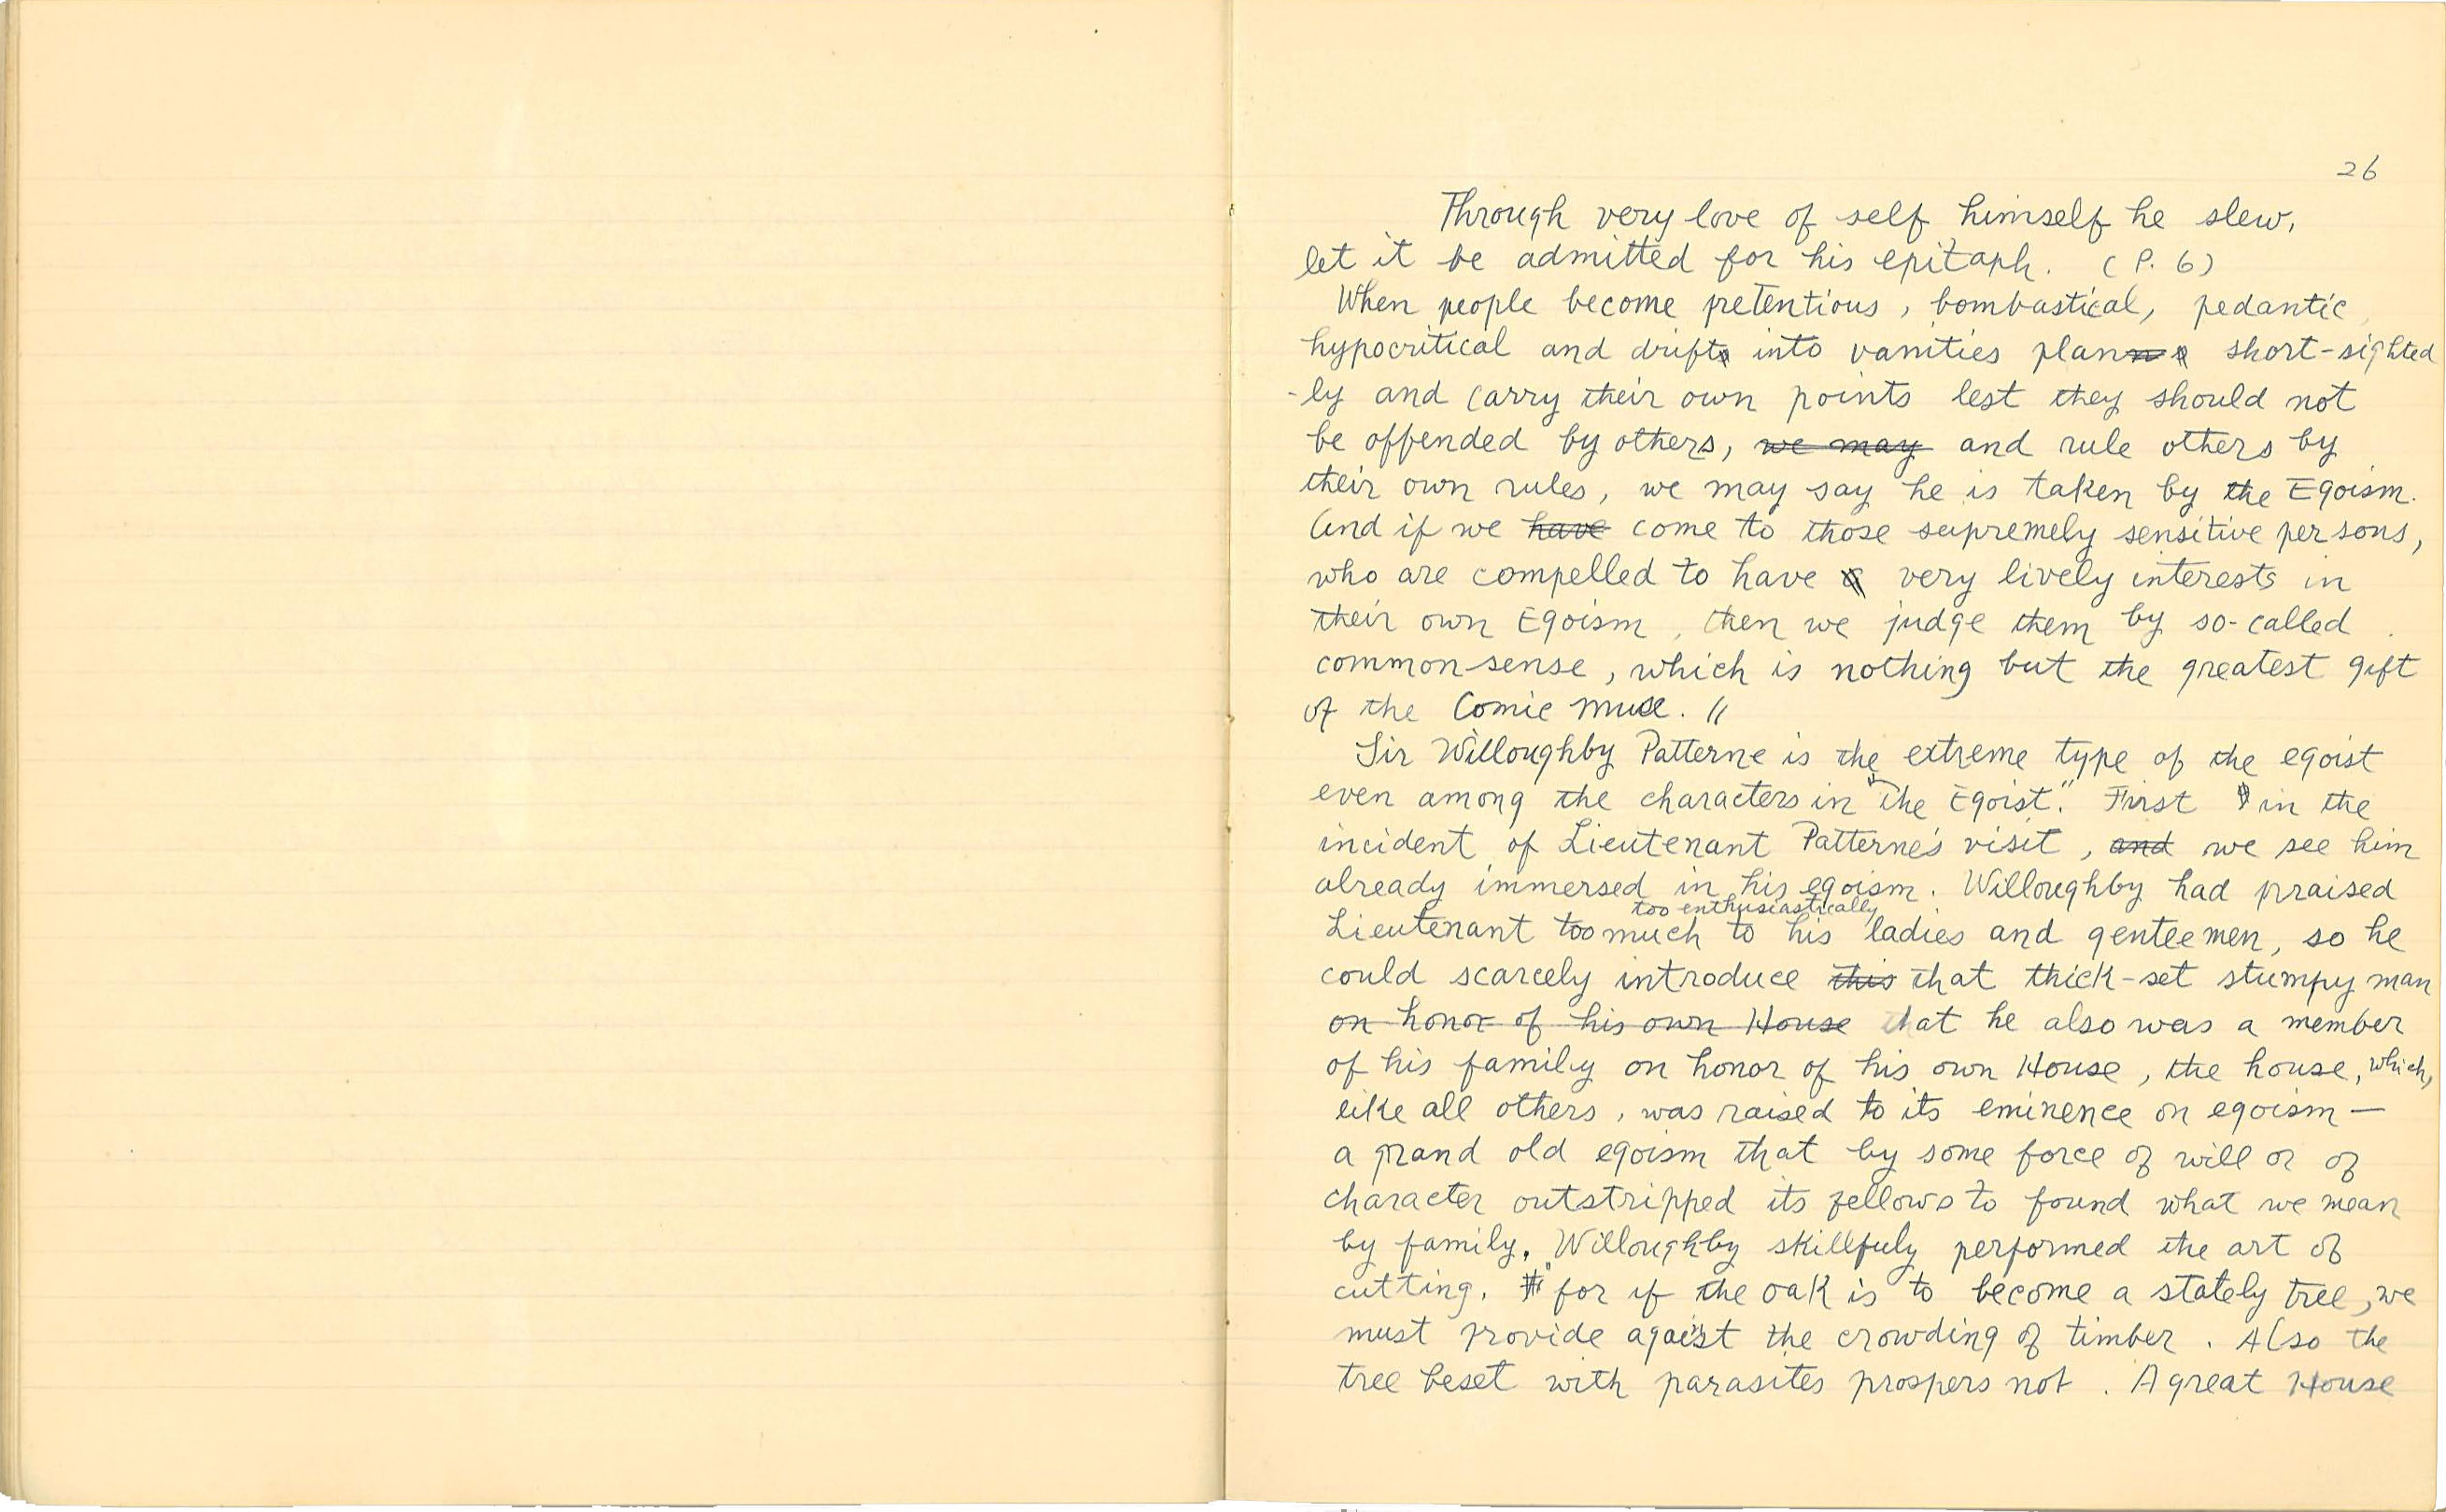 26
Through very love of self himself he slew,
let it be admitted for his epitaph. (P. 6)
When people become pretentious, bombastical, pedantic,
hypocritical and drift into vanities plan short-sighted
-ly and carry their own points lest they should not
be offended by others, we may and rule others by
their own rules, we may say he is taken by the Egoism.
And if we have come to those supremely sensitive persons,
who are compelled to have a very lively interests in
their own Egoism, then we judge them by so-called
common-sense, which is nothing but the greatest gift
of the Comic Muse. //
Sir Willoughby Patterne is the extreme type of the egoist
even among the characters in "The Egoist". First in the
incident of Lieutenant Patterne's visit, and we see him
already immersed in his egoism. Willoughby had praised
too enthusiastically
Lieutenant too much to his ladies and genteemen, so he
could scarcely introduce this that thick-set stumpy man
on honor of his own House that he also was a member
of his family on honor of his own House, the house, which,
like all others, was raised to its eminence on egoism —
a grand old egoism that by some force of will or of
character outstripped its fellows to found what we mean
by family. Willoughby skillfuly performed the art of
cutting. "for if the oak is to become a stately tree, we
must provide against the crowding of timber. Also the
tree beset with parasites prospers not. A great House